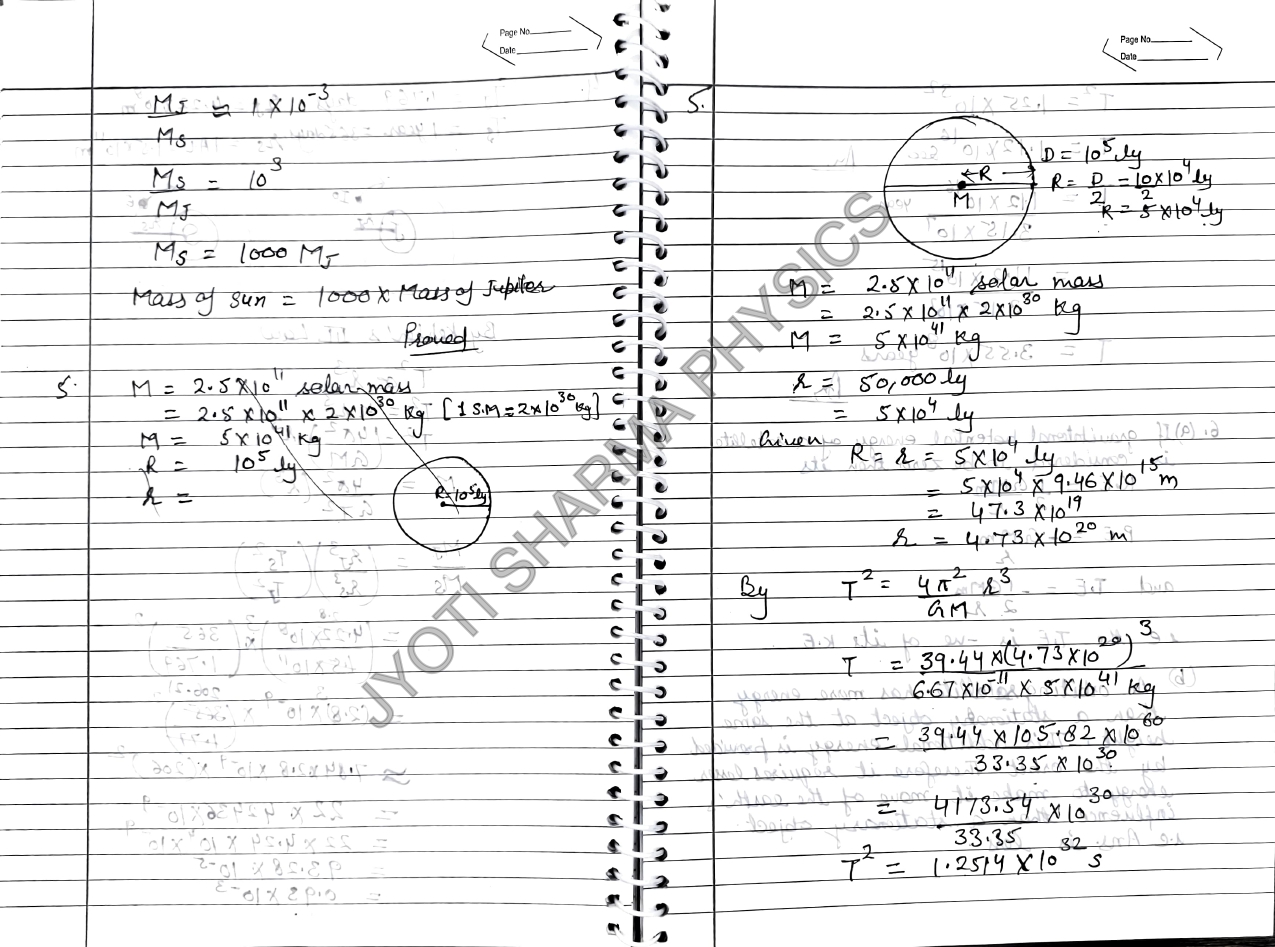 Page No.
Date
MJ ≈ 1 × 10⁻³
MS
MS = 10³
MJ
MS = 1000 MJ
Mass of sun = 1000 × Mass of Jupiter
Proved
5. M = 2.5 × 10¹¹ solar mass
= 2.5 × 10¹¹ × 2 × 10³⁰ kg [1 S.M = 2 × 10³⁰ kg]
M = 5 × 10⁴¹ kg
R = 10⁵ ly
r =
R = 10⁵ ly
Page No.
Date
5.
D = 10⁵ ly
R
R = D = 10 × 10⁴ ly
2 2
M
R = 5 × 10⁴ ly
M = 2.5 × 10¹¹ solar mass
= 2.5 × 10¹¹ × 2 × 10³⁰ kg
M = 5 × 10⁴¹ kg
r = 50,000 ly
= 5 × 10⁴ ly
Given R = r = 5 × 10⁴ ly
= 5 × 10⁴ × 9.46 × 10¹⁵ m
= 47.3 × 10¹⁹
r = 4.73 × 10²⁰ m
By T² = 4π² r³
GM
T = 39.44 × (4.73 × 10²⁰)³
6.67 × 10⁻¹¹ × 5 × 10⁴¹ kg
= 39.44 × 105.82 × 10⁶⁰
33.35 × 10³⁰
= 4173.54 × 10³⁰
33.35
T² = 1.2514 × 10³² s
JYOTI SHARMA PHYSICS